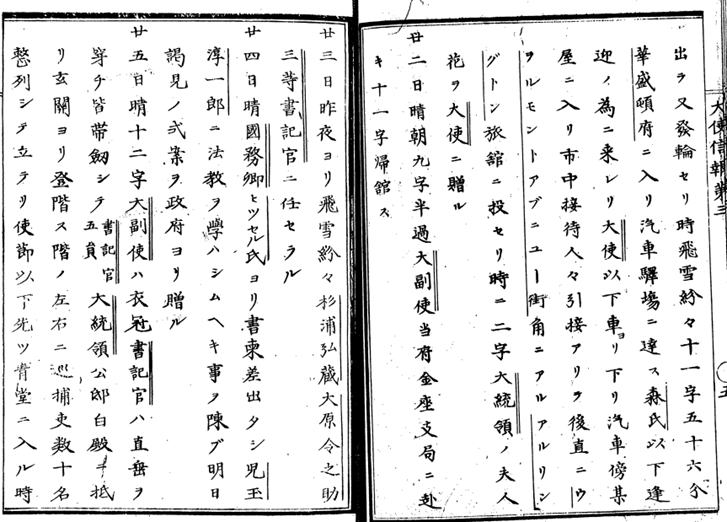 大使信報第三
五
出ラ又發輪セリ時飛雪紛々十一字五十六分
華盛頓府ニ入リ汽車驛塲ニ達ス森氏以下逢
迎ノ為ニ来レリ大使以下車ヨリ下リ汽車傍某
屋ニ入リ市中接待人々引接アリヲ後直ニウ
ヲルモントアブニユー街角ニアルアルリン
グトン旅舘ニ投セリ時ニ二字大統領ノ夫人
花ヲ大使ニ贈ル
廿二日晴朝九字半過大副使当府金座支局ニ赴
キ十一字帰舘ス
廿三日昨夜ヨリ飛雪紛々杉浦弘藏大原令之助
三等書記官ニ任セラル
廿四日晴國務卿ヒツセル氏ヨリ書柬差出タシ児玉
淳一郎ニ法教ヲ學ハシムヘキ事ヲ陳ブ明日
謁見ノ式案ヲ政府ヨリ贈ル
廿五日晴十二字大副使ハ衣冠書記官ハ直垂ヲ
穿チ皆帯劔シテ書記官五員大統領公邸白殿ニ抵
リ玄關ヨリ登階ス階ノ左右ニ巡捕吏数十名
整列シテ立テリ使節以下先ツ青堂ニ入ル時